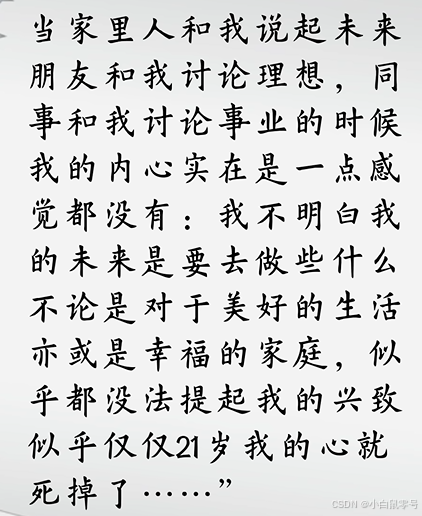 当家里人和我说起未来
朋友和我讨论理想，同
事和我讨论事业的时候
我的内心实在是一点感
觉都没有：我不明白我
的未来是要去做些什么
不论是对于美好的生活
亦或是幸福的家庭，似
乎都没法提起我的兴致
似乎仅仅21岁我的心就
死掉了……”
CSDN @小白鼠零号